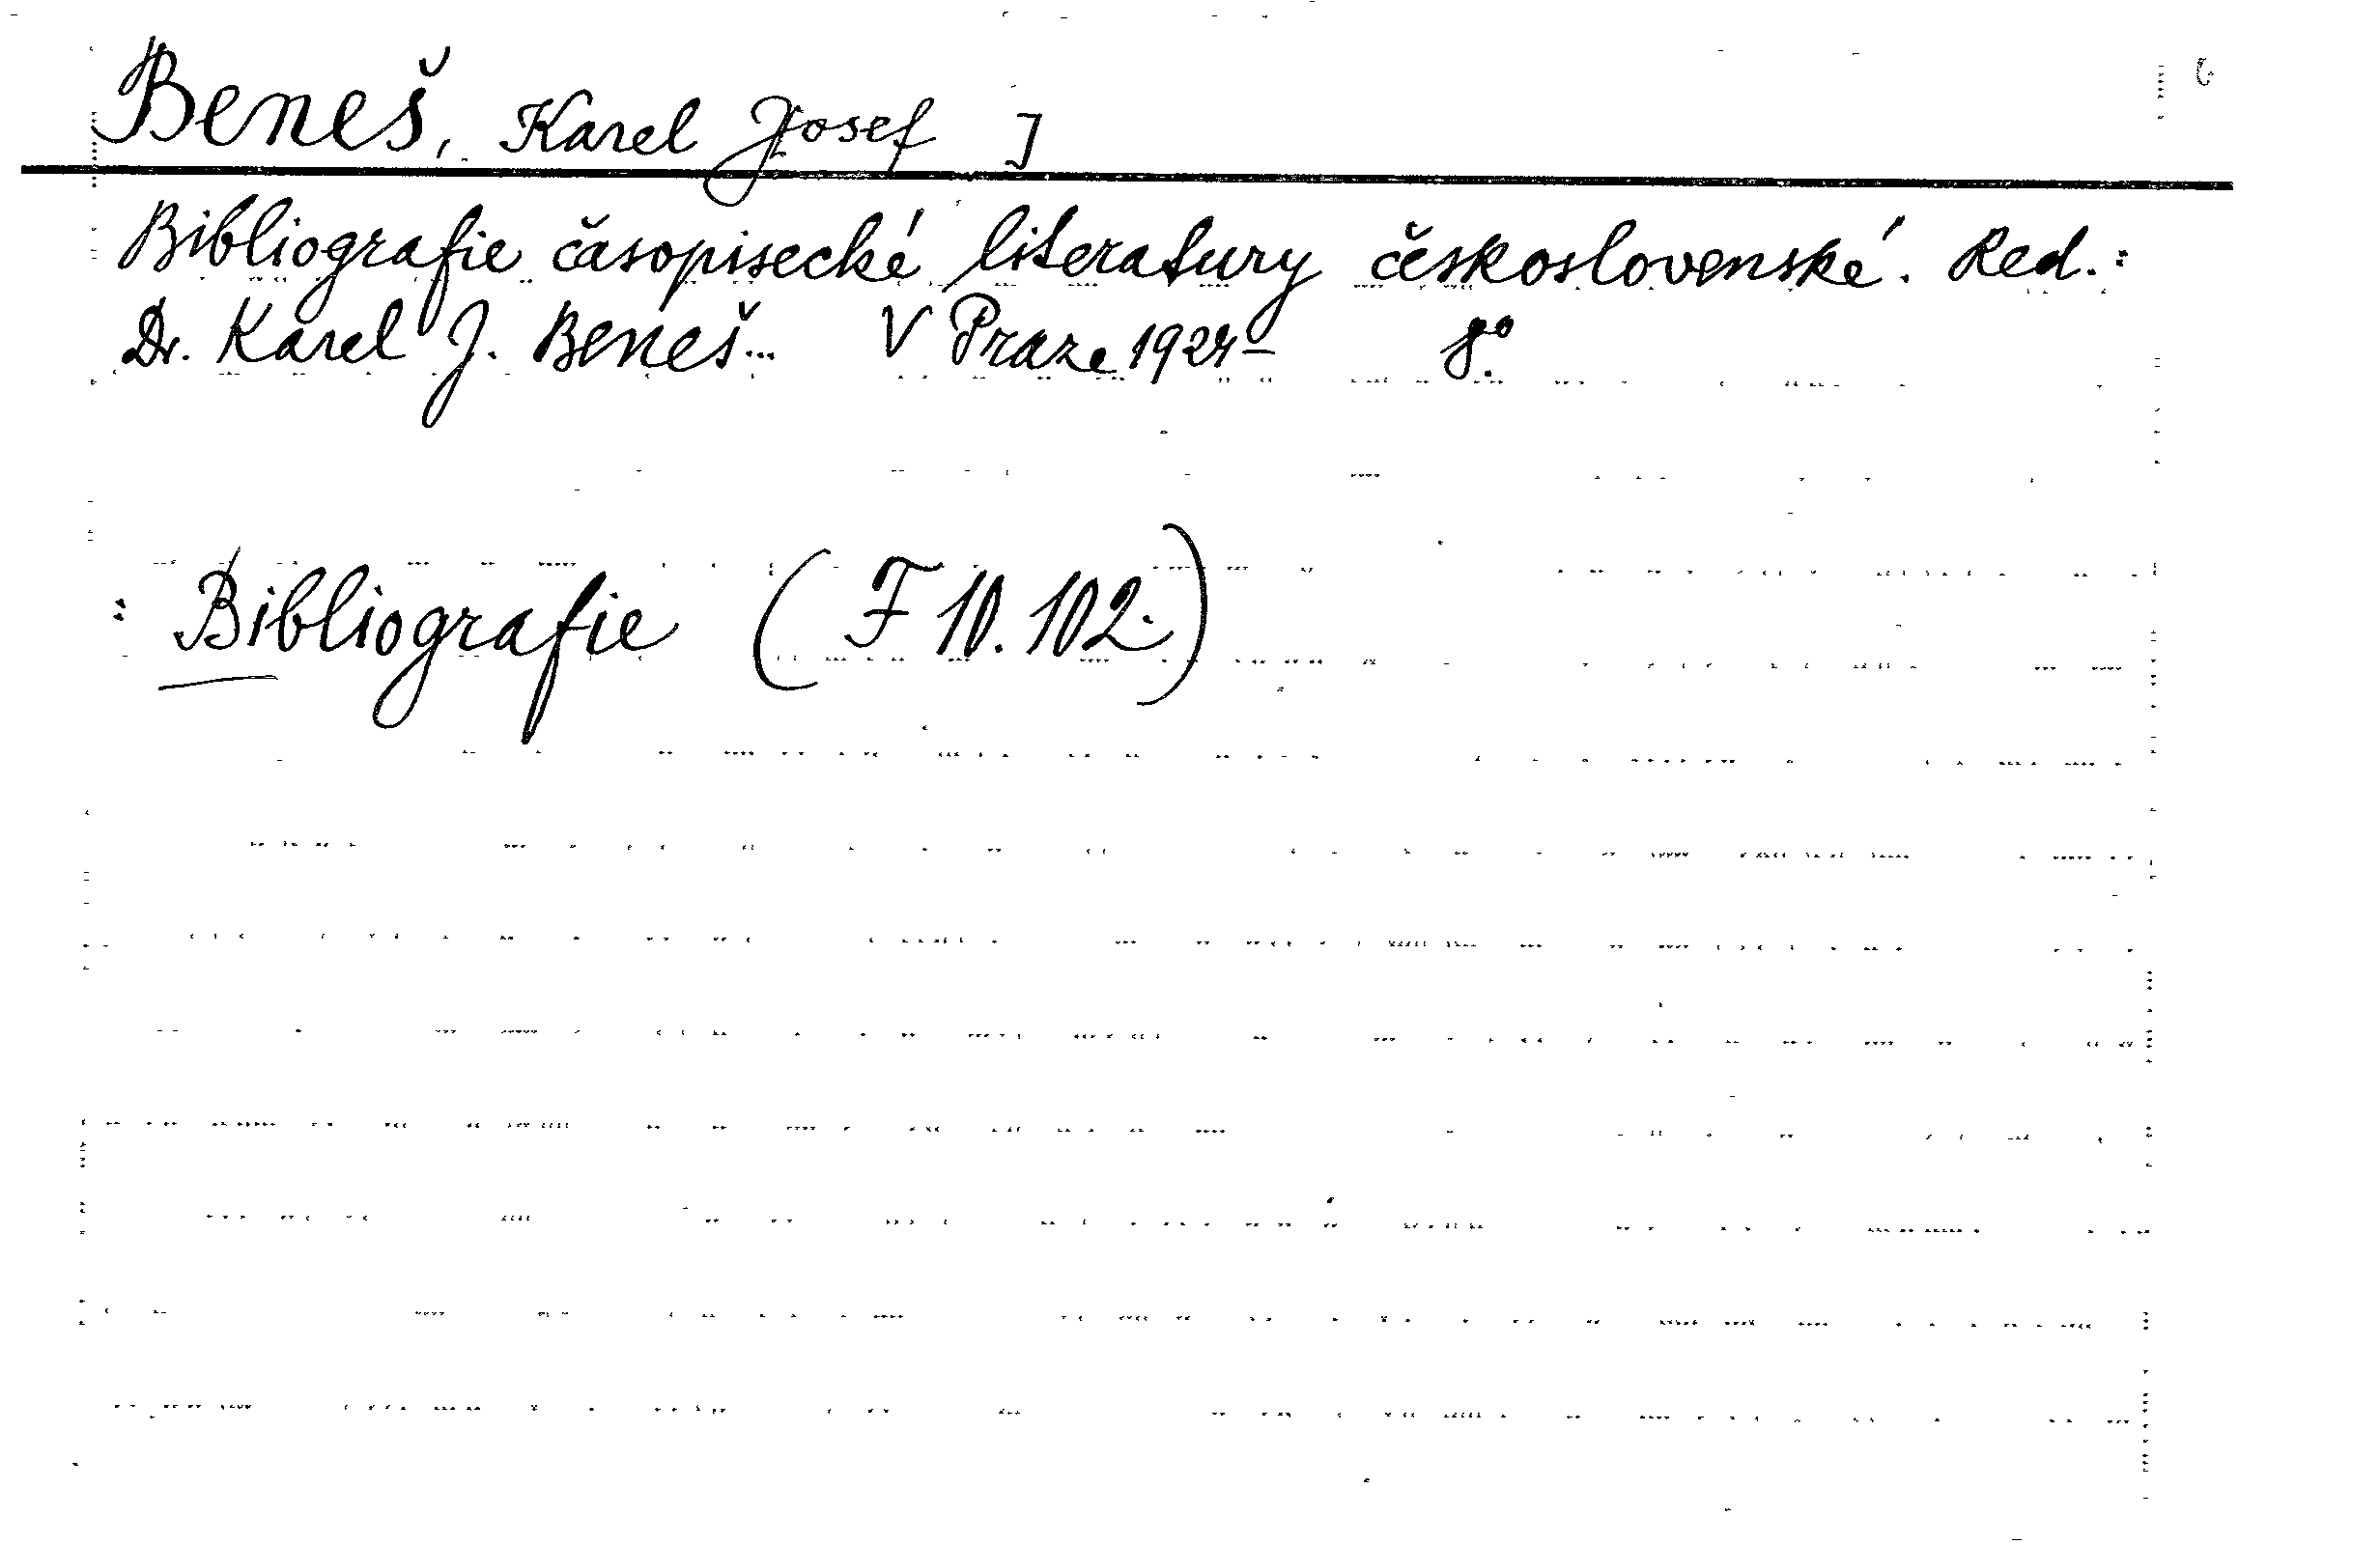 Beneš, Karel Josef ]
Bibliografie časopisecké literatury československé. Red.:
Dr. Karel J. Beneš... V Praze 1924- 8°.
: Bibliografie (F 10.102.)